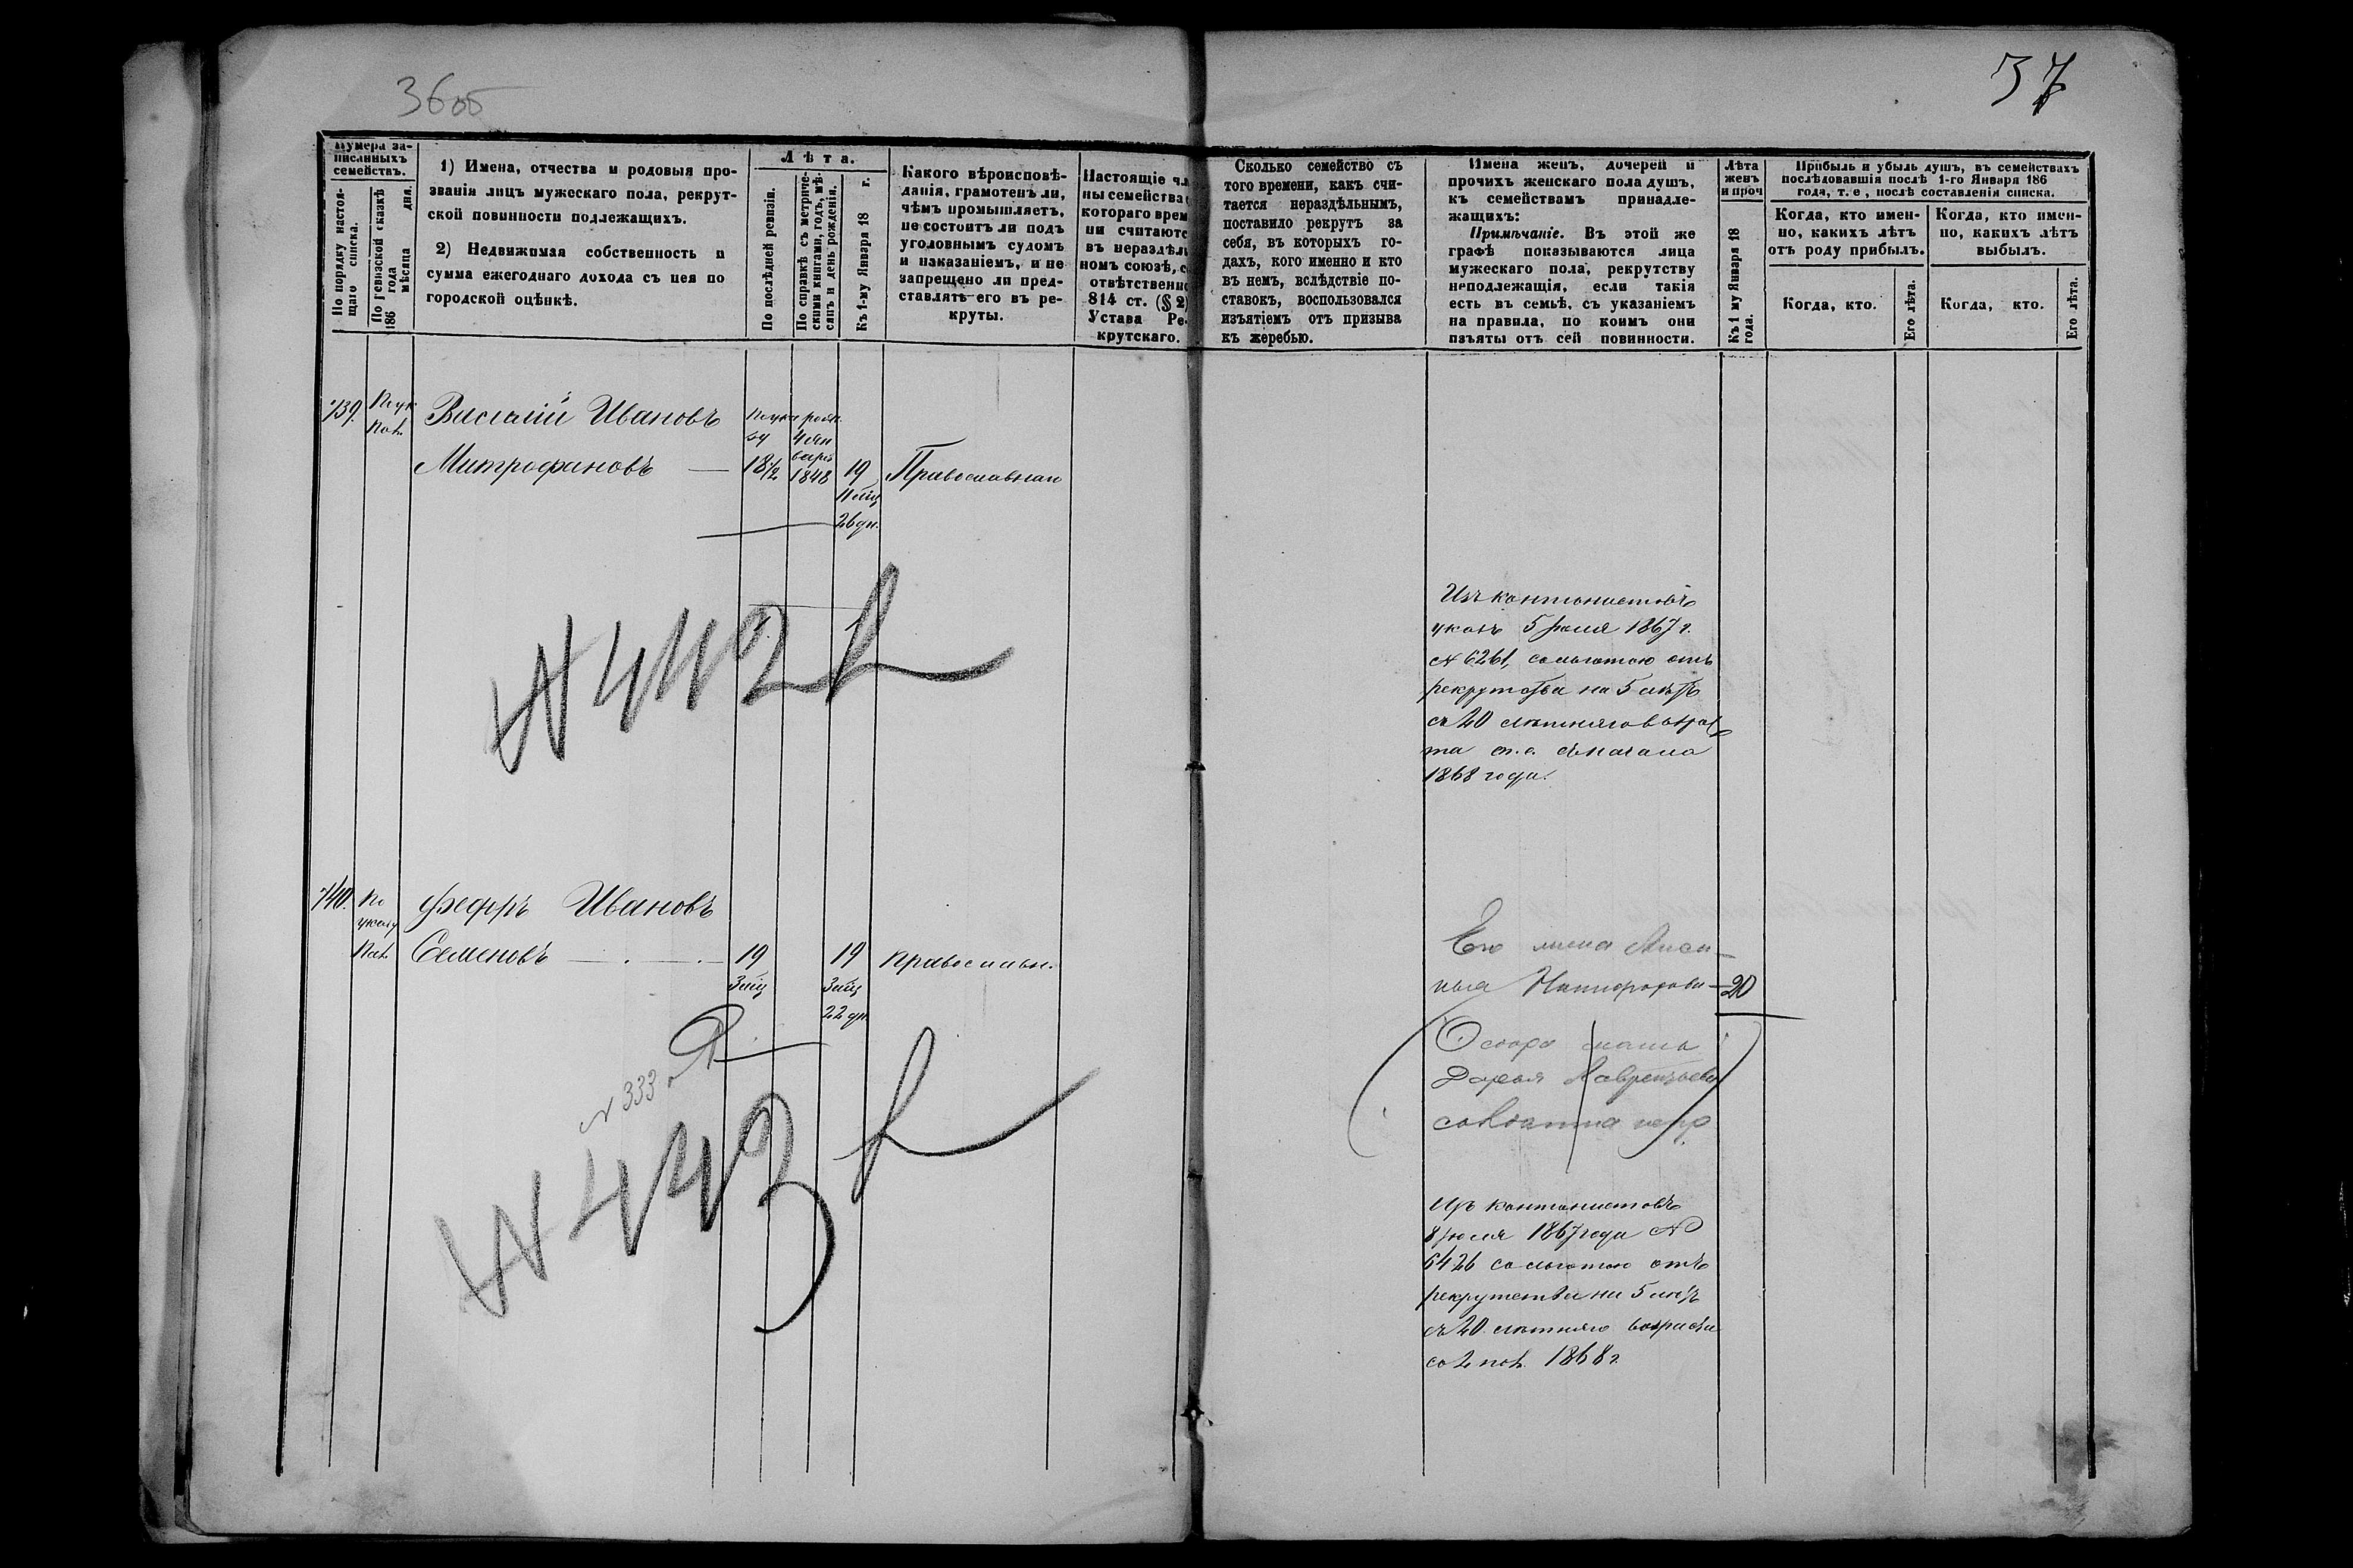 36об
37
Нумера за-
писанныхъ
семействъ.
По порядку настоя-
щаго списка.
По ревизской сказкѣ
186 года мѣсяца дня.
1) Имена, отчества и родовыя про-
званія лицъ мужескаго пола, рекрут-
ской повинности подлежащихъ.
2) Недвижимая собственность и
сумма ежегоднаго дохода съ нея по
городской оцѣнкѣ.
Лѣта.
По послѣдней ревизіи.
По справкѣ съ метриче-
скими книгами, годъ, мѣ-
сяцъ и день рожденія.
Къ 1-му Января 18 г.
Какого вѣроисповѣ-
данія, грамотенъ ли,
чѣмъ промышляетъ,
не состоитъ ли подъ
уголовнымъ судомъ
и наказаніемъ, и не
запрещено ли пред-
ставлять его въ ре-
круты.
Настоящіе чл
ны семейства
котораго врем
ни считаютс
въ нераздѣл
номъ союзѣ, с
отвѣтственно
814 ст. (§ 2)
Устава Ре-
крутскаго.
Сколько семейство съ
того времени, какъ счи-
тается нераздѣльнымъ,
поставило рекрутъ за
себя, въ которыхъ го-
дахъ, кого именно и кто
въ немъ, вслѣдствіе по-
ставокъ, воспользовался
изъятіемъ отъ призыва
къ жеребью.
Имена женъ, дочерей и
прочихъ женскаго пола душъ,
къ семействамъ принадле-
жащихъ:
Примѣчаніе. Въ этой же
графѣ показываются лица
мужескаго пола, рекрутству
неподлежащія, если такія
есть въ семьѣ, съ указаніемъ
на правила, по коимъ они
изъяты отъ сей повинности.
Лѣта
женъ
и проч
Къ 1 му Января 18
года.
Прибыль и убыль душъ, въ семействахъ
послѣдовавшія послѣ 1-го Января 186
года, т. е., послѣ составленія списка.
Когда, кто имен-
но, какихъ лѣтъ
отъ роду прибылъ.
Когда, кто.
Его лѣта.
Когда, кто имен-
но, какихъ лѣтъ
выбылъ.
Когда, кто.
Его лѣта.
739.
Василій Ивановъ
Митрофановъ —
18½
4 ян
варя
1848
19
11 мѣц
26 дн.
Православнаго
№ 442
Изъ кантонистовъ
указъ 5 Іюля 1867 г.
№ 6261, со льготою отъ
рекрутства на 5 лѣтъ
съ 20 лѣтняго возрас
та т. е. съ начала
1868 года.
740.
По
указу
Федоръ Ивановъ
Семеновъ
19
3 мѣц
19
3 мѣц
22 дн.
Православн.
Его жена
20
№ 333
№ 443
Федора мать
Дарья Лаврентьева
солдатка
Изъ кантонистовъ
8 Іюля 1867 года №
6426 со льготою отъ
рекрутства на 5 лѣтъ
съ 20 лѣтняго возраста
со 2 пол. 1868 г.